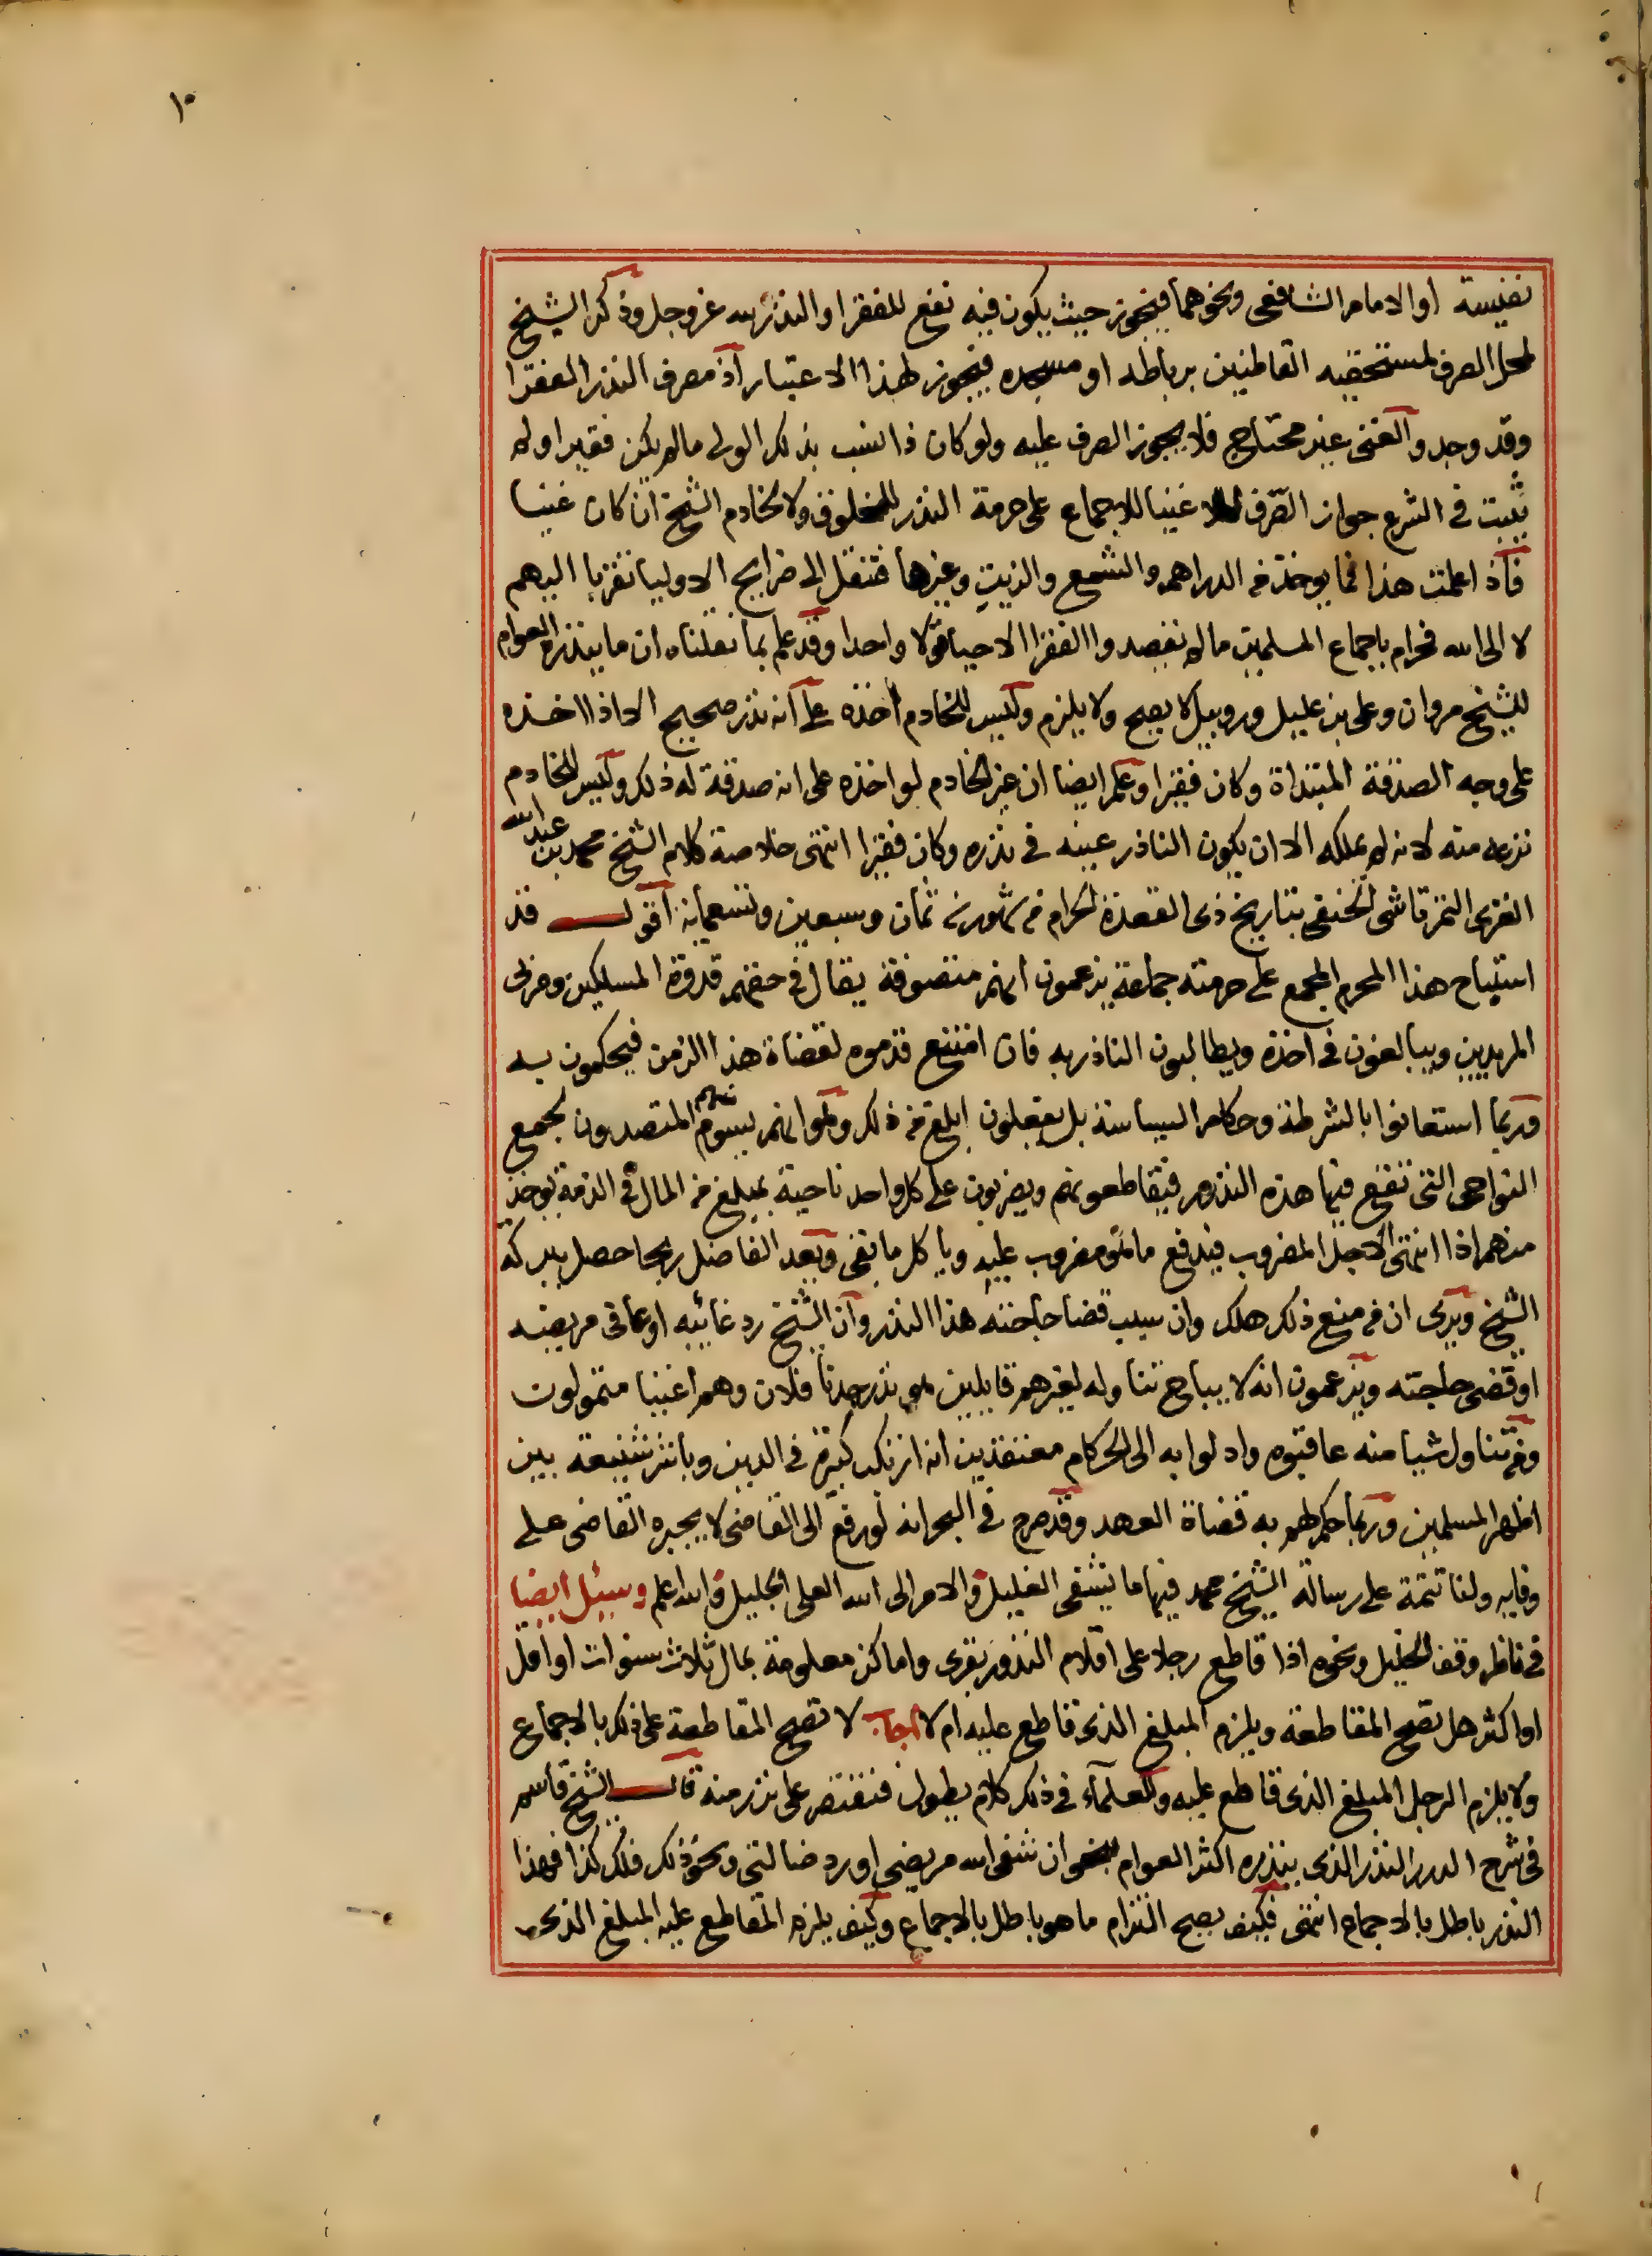 ١٠
نفيسة او الامام الشافعى ونحوهما فيجوز حيث يكون فيه نفع للفقرا والنذر لله عز وجل وذكر الشيخ
لمحل الصرف لمستحقيه القاطنين برباطه او مسجده فيجوز لهذا الاعتبار اذ مصرف النذر الفقرا
وقد وجد والغنى غير محتاج فلا يجوز الصرف عليه ولو كان ذا نسب بذلك الولى مالم يكن فقيرا ولم
يثبت فى الشرع جواز الصرف للاغنيا للاجماع على حرمة النذر للمخلوق ولا لخادم الشيخ ان كان غنيا
فاذا علمت هذا فما يوخذ من الدراهم والشمع والزيت وغيرها فتنقل الى ضرايح الاوليا تقربا اليهم
لا الى الله فحرام باجماع المسلمين مالم تقصدوا الفقرا الاحيا قولا واحدا وقد علم بما نقلناه ان ما ينذره العوام
للشيخ مروان وعلى بن عليل وروبيل لا يصح ولا يلزم وليس للخادم اخذه على انه نذر صحيح الا اذا اخذه
على وجه الصدقة المبتداة وكان فقيرا وعلم ايضا ان غير الخادم لو اخذه على انه صدقة له ذلك وليس للخادم
نزعه منه لانه لم يملكه الا ان يكون الناذر عينه فى نذره وكان فقيرا انتهى خلاصة كلام الشيخ محمد بن عبد الله
الغزى التمرتاشى الحنفى بتاريخ ذى القعدة الحرام من شهور سنة ثمان وسبعين وتسعماية اقول قد
استباح هذا المحرم المجمع على حرمته جماعة يزعمون انهم متصوفة يقال فى حقهم قدوة المسلكين ومربى
المريدين ويبالغون فى اخذه ويطالبون الناذر به فان امتنع قدموه لقضاة هذا الزمن فيحكمون به
وربما استعانوا بالشرطة وحكام السياسة بل يفعلون ابلغ من ذلك وهو انهم يسومهم المتصدون لجمع
النواحى التى تقع فيها هذه النذور فيقاطعونهم ويضربون على كل واحد ناحية بمبلغ من المال فى الذمة يوخذ
منهم اذا انتهى الاجل المضروب فيدفع ما هو مضروب عليه وياكل ما بقى ويعد الفاضل ربحا حصل ببركة
الشيخ ويرى ان من منع ذلك هلك وان سبب قضا حاجته هذا النذر وان الشيخ رد غائبه او عافى مريضه
او قضى حاجته ويزعمون انه لا يباح تناوله لغيرهم قايلين هو نذر جدنا فلان وهم اغنيا متمولون
ومن تناول شيا منه عاقبوه وادلوا به الى الحكام معتقدين انه ارتكب كبيرة فى الدين وباء بشنيعة بين
اظهر المسلمين وربما حكم لهم به قضاة العهد وقد صرح فى البحر انه لو رفع الى القاضى لا يجبره القاضى على
وفايه ولنا تتمة على رسالة الشيخ محمد فيها ما يشفى الغليل والامر الى الله العلى الجليل والله اعلم وسئل ايضا
فى ناظر وقف الخليل ونحوه اذا قاطع رجلا على اقلام النذور بقرى واماكن معلومة بمال ثلاث سنوات او اقل
او اكثر هل تصح المقاطعة ويلزم المبلغ الذى قاطع عليه ام لا اجاب لا تصح المقاطعة على ذلك بالاجماع
ولا يلزم الرجل المبلغ الذى قاطع عليه وللعلمآء فى ذلك كلام يطول فنقتصر على نزر منه قال الشيخ قاسم
فى شرح الدرر النذر الذى ينذره اكثر العوام نحو ان شفى الله مريضى او رد ضالتى ونحو ذلك فلك كذا فهذا
النذر باطل بالاجماع انتهى فكيف يصح التزام ما هو باطل بالاجماع وكيف يلزم المقاطع عليه المبلغ الذى